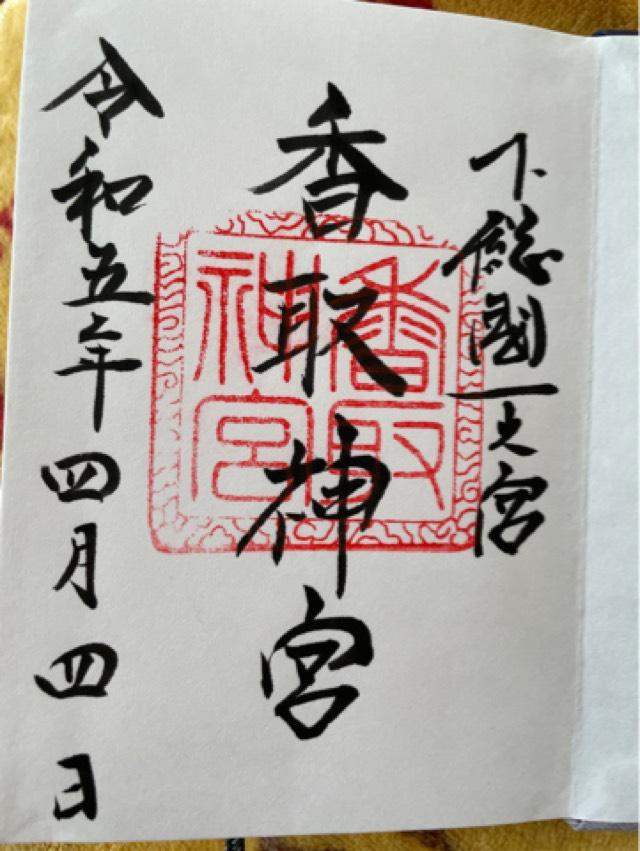 下総國一之宮
香取神宮
香取神宮
令和五年四月四日